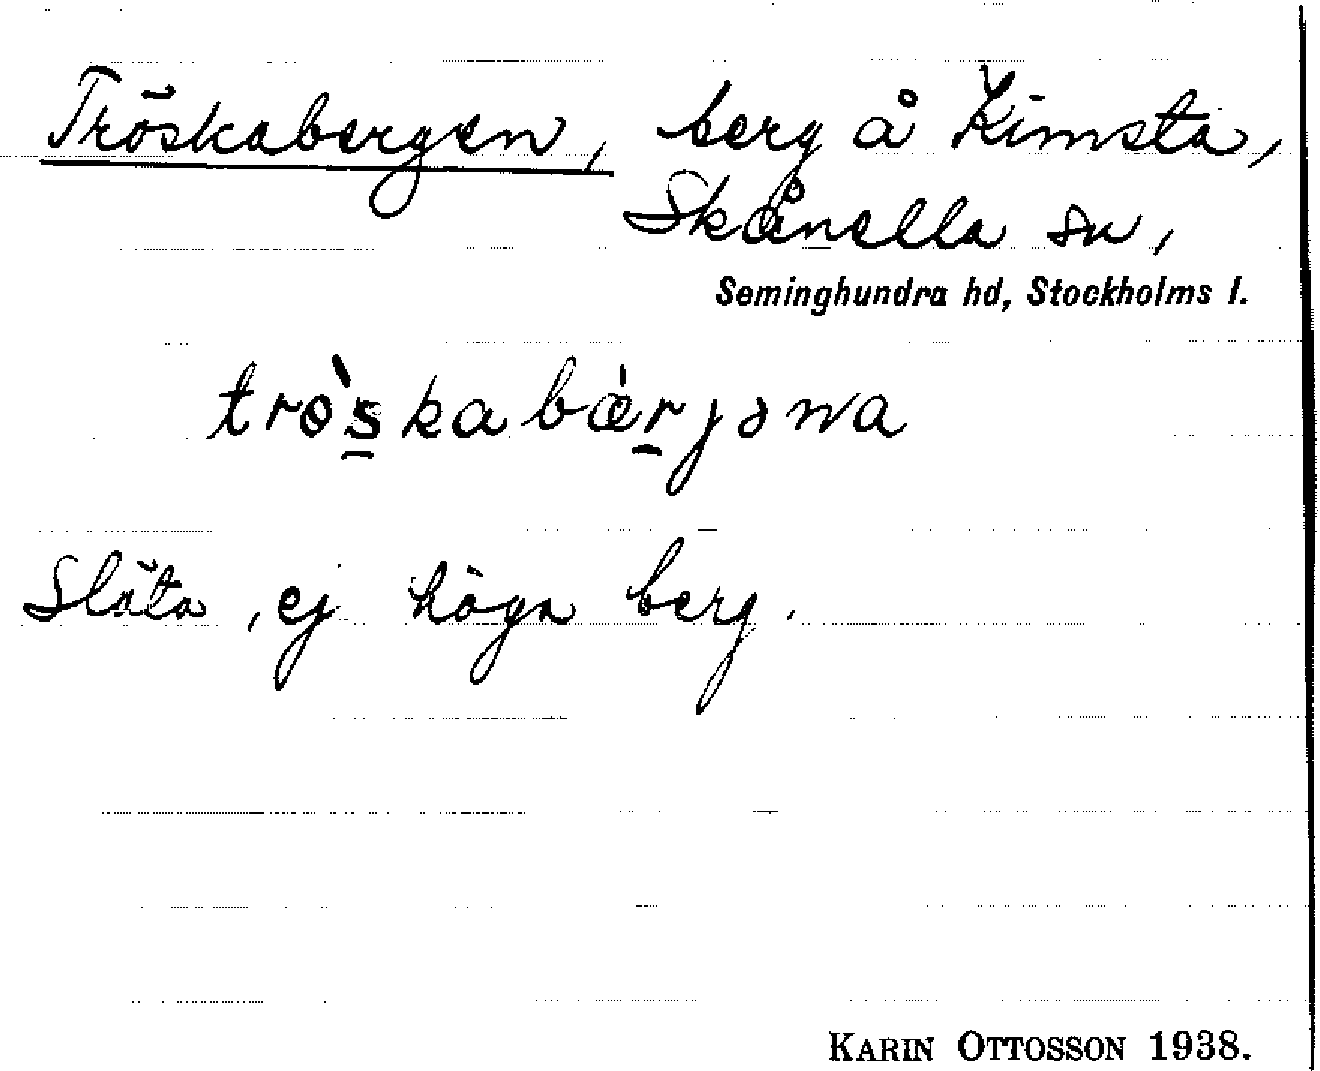 Tröskabergen, berg å Kimsta,
Skånella sn,
Seminghundra hd, Stockholms l.
trø̀s̲kabæ̀r̲jəna
Släta, ej höga berg.
KARIN OTTOSSON 1938.